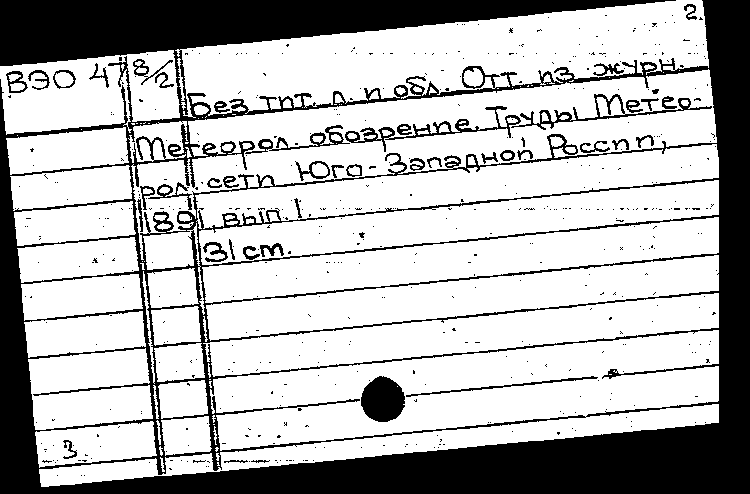 2.
ВЭО 47 8/2
Без тит. л. и обл. Отт. из журн.
Метеорол. обозрение. Труды Метео-
рол. сети Юго-Западной России,
1891, вып. 1.
31 см.
3